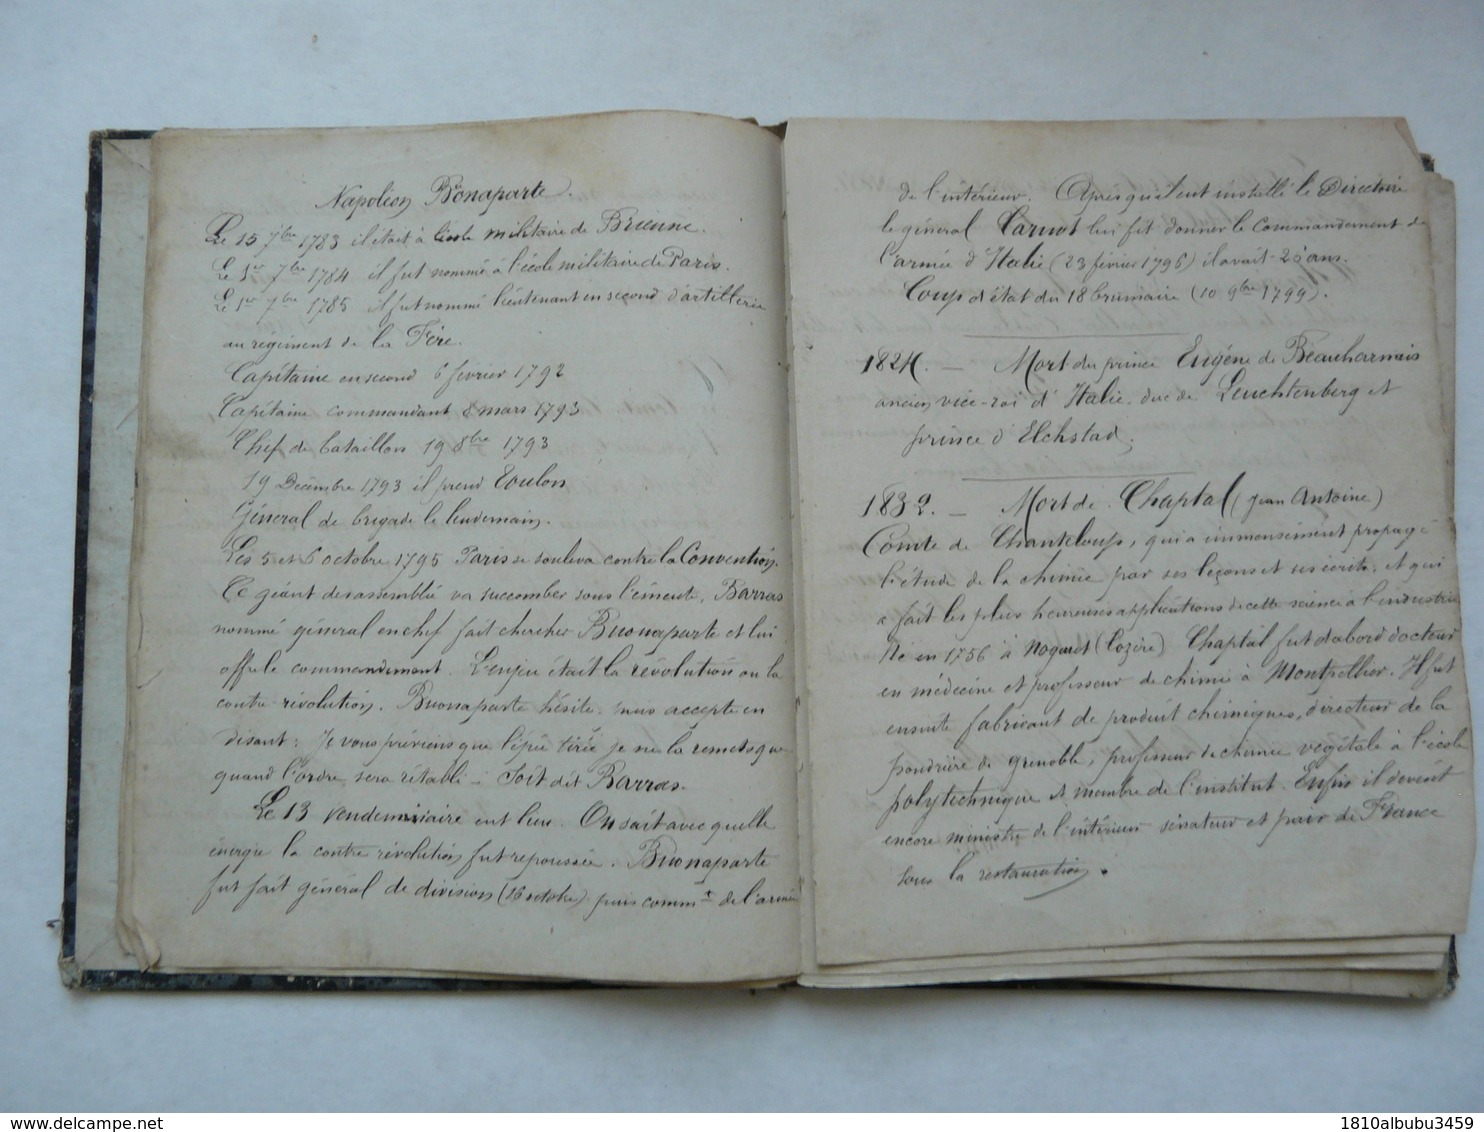 Napoléon Bonaparte.
Le 15 7bre 1783 il était à l'école militaire de Brienne.
Le 1er 7bre 1784 il fut nommé à l'école militaire de Paris.
Le 1er 7bre 1785 il fut nommé lieutenant en second d'artillerie
au régiment de la Fère.
Capitaine en second 6 février 1792
Capitaine commandant 8 mars 1793
Chef de bataillon 19 8bre 1793
19 Décembre 1793 il prend Toulon
Général de brigade le lendemain.
Les 5 et 6 octobre 1795 Paris se souleva contre la Convention.
Ce géant desassemblé va succomber sous l'émeute, Barras
nommé général en chef fait chercher Buonaparte et lui
offre le commandement. L'enjeu était la révolution ou la
contre-révolution. Buonaparte hésite, mais accepte en
disant: Je vous préviens que l'épée tirée je ne la remets que
quand l'ordre sera rétabli - Soit dit Barras.
Le 13 vendemiaire eut lieu. On sait avec quelle
énergie la contre révolution fut repoussée. Buonaparte
fut fait général de division (16 octobre) puis commt de l'armée
de l'intérieur. Après qu'il eut installé le Directoire
le général Carnot lui fit donner le commandement de
l'armée d'Italie (23 février 1796) il avait 26 ans.
Coup d'état du 18 brumaire (10 9bre 1799).
1824. - Mort du prince Eugène de Beauharnais
ancien vice-roi d'Italie, duc de Leuchtenberg et
prince d'Eichstad.
1832. - Mort de Chaptal (Jean Antoine)
Comte de Chanteloup, qui a immensément propagé
l'étude de la chimie par ses leçons et ses écrits, et qui
a fait les plus heureuses applications de cette science à l'industrie
Né en 1756 à Nogaret (Lozère) Chaptal fut d'abord docteur
en médecine et professeur de chimie à Montpellier. Il fut
ensuite fabricant de produit chimiques, directeur de la
poudrière de Grenoble, professeur de chimie végétale à l'école
polytechnique et membre de l'institut. Enfin il devint
encore ministre de l'intérieur sénateur et pair de France
sous la restauration.
delcampe.net
1810albubu3459